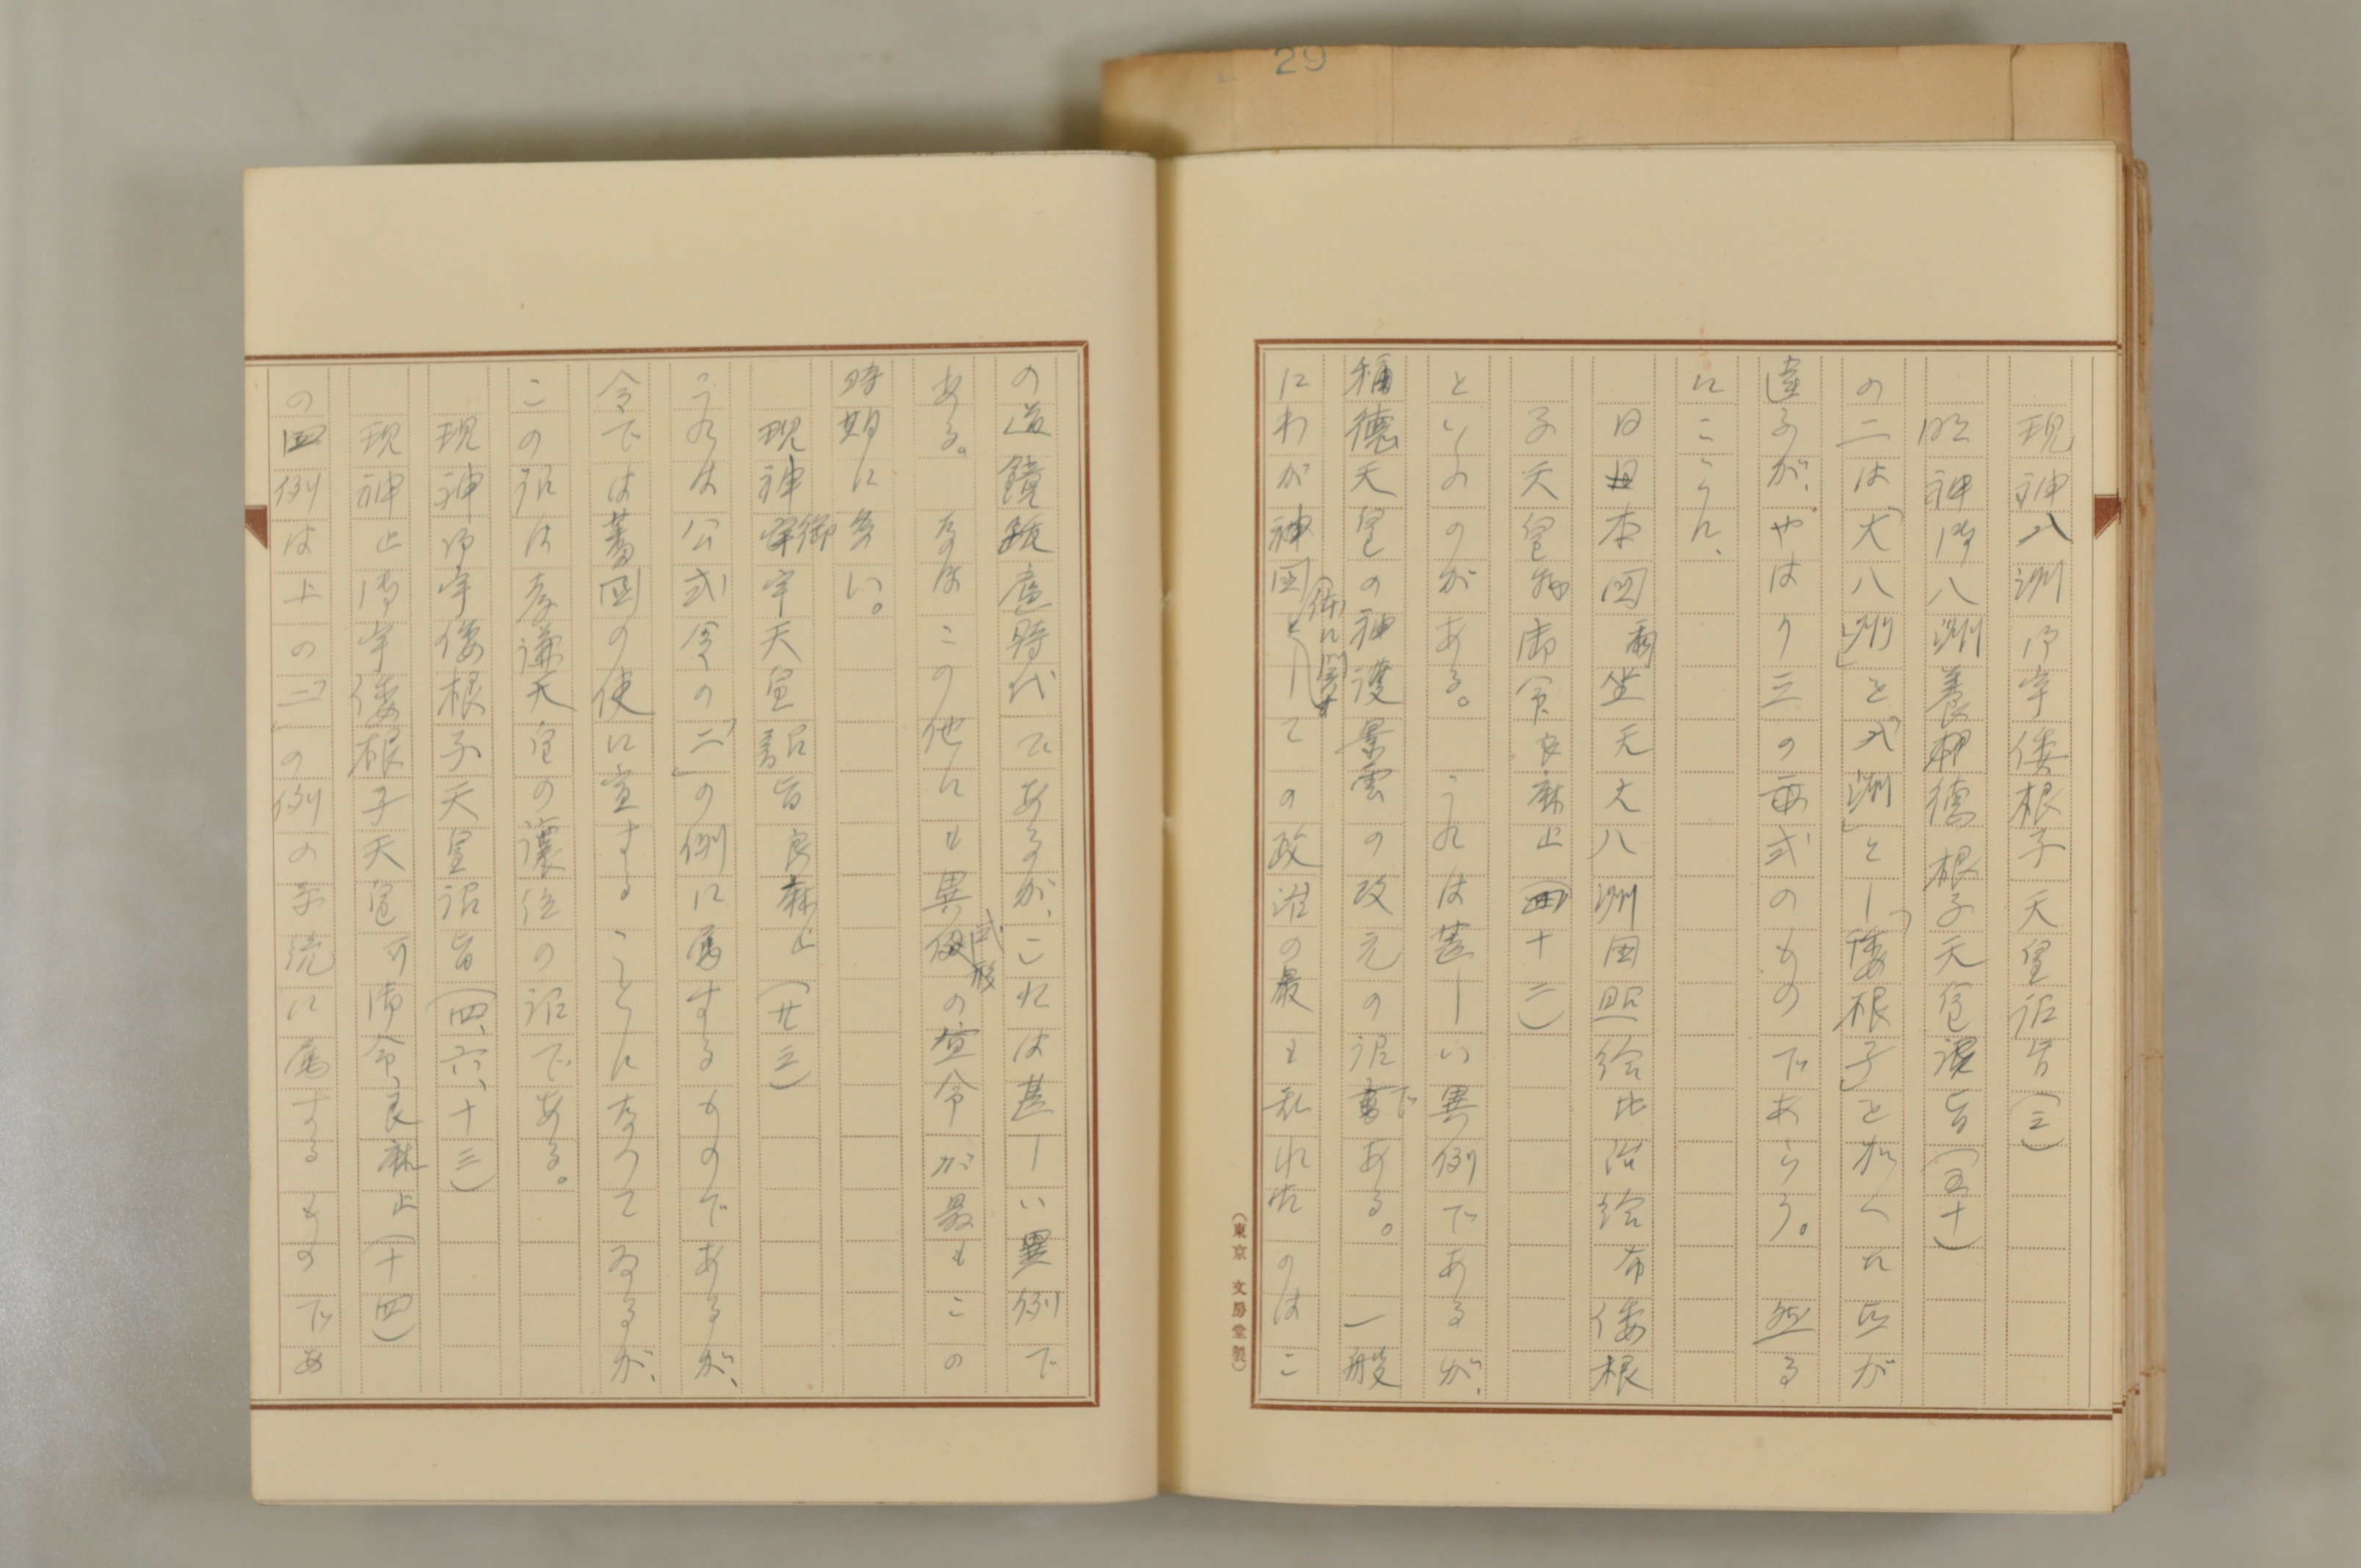 29
現神八洲御宇倭根子天皇詔旨(三)
明神御八洲養徳根子天皇詔旨(五十)
の二は「大八洲」と「八洲」とし「倭根子」と加へた点が
違ふが、やはり三の要式のものであらう。然る
にこゝに、
日本国坐天大八洲国照給比治給布倭根
子天皇御命良麻止(四十二)
といふのがある。これは甚しい異例であるが、
稱徳天皇の神護景雲の改元の詔である。一般
にわが神国体に関しての政治の最も乱れたのはこ
の道鏡跋扈時代であるが、これは甚しい異例で
ある。なほこの他にも異式形の宣命が最もこの
時期に多い。
現神御宇天皇詔旨良麻止(廿三)
これは公式令の「二」の例に属するものであるが、
令では蕃国の使に宣することになつてゐるが、
この詔は孝謙天皇の譲位の詔である。
現神御宇倭根子天皇詔旨(四、六、十三)
現神止御宇倭根子天皇可御命良麻止(十四)
の四例は上の「二」の例の系統に属するものであ
(東京 文房堂製)